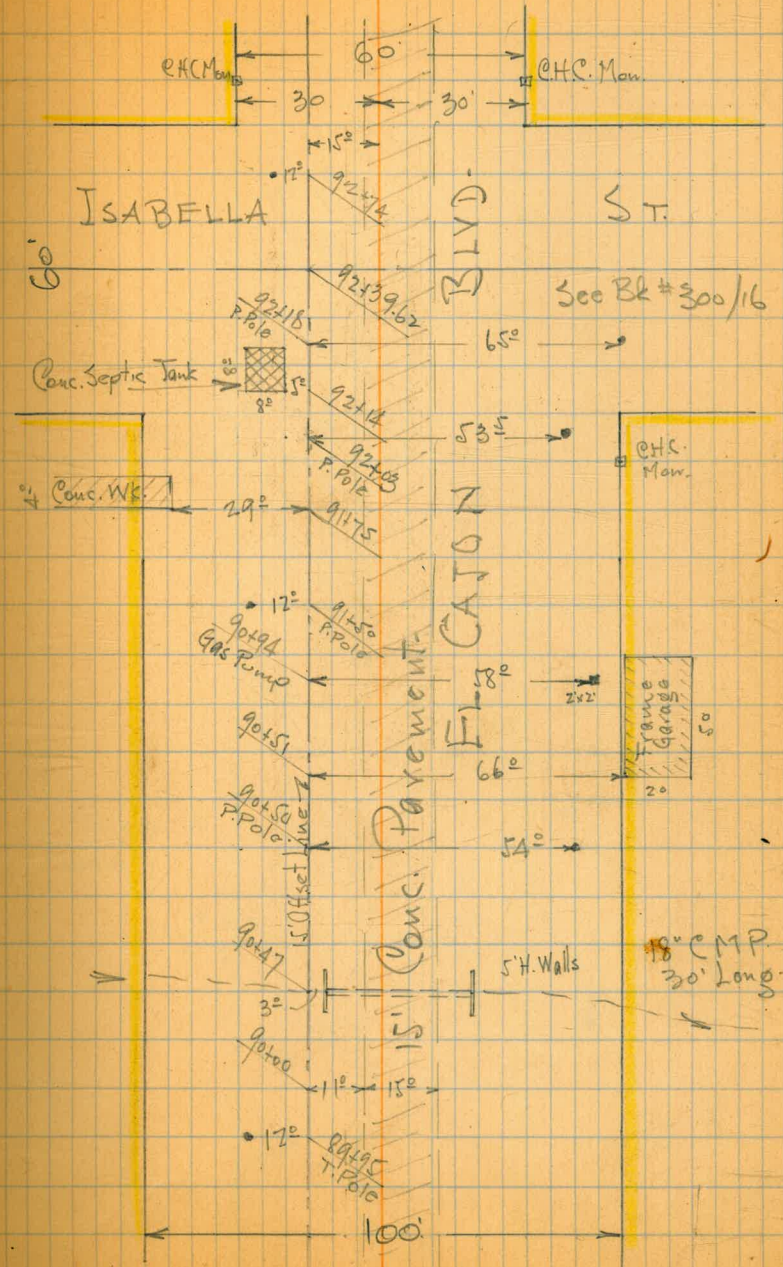 60
C.H.C. Mon.
C.H.C. Mon.
30
30'
15º
12º
92+74
ISABELLA
ST.
60'
92+39.62
See Bk # 300/16
92+18
P. Pole
65º
Conc. Septic Tank
8º
8º
5º
92+14
53⁵
92+03
P. Pole
C.H.C.
Mon.
4º
Conc. Wk.
29º
91+75
12º
91+50
P. Pole
90+94
Gas Pump
58º
2'x2'
Frame
Garage
50
20
90+51
66º
90+50
P. Pole
54º
15' Offset Line
EL CAJON BLVD.
15' Conc. Pavement.
90+47
3º
5' H. Walls
18" C M P.
30' Long
90+00
11º
15º
12º
89+95
T. Pole
100'